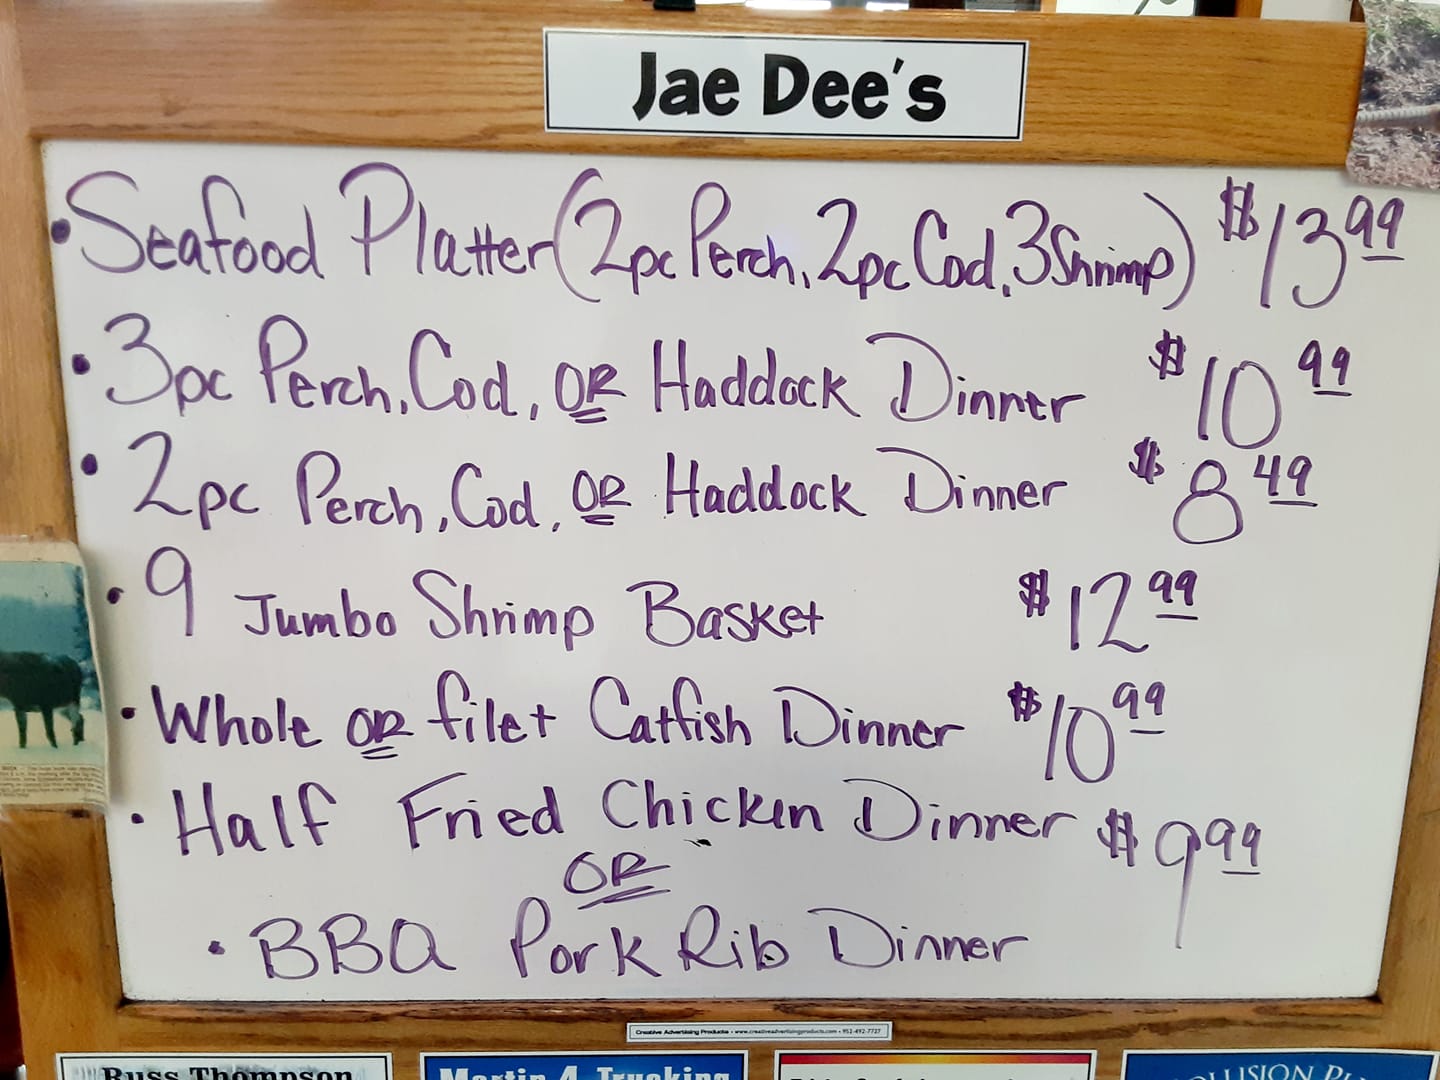 Jae Dee's
• Seafood Platter (2pc Perch, 2pc Cod, 3 Shrimp) $13.99
• 3pc Perch, Cod, OR Haddock Dinner $10.99
• 2pc Perch, Cod, OR Haddock Dinner $8.49
• 9 Jumbo Shrimp Basket $12.99
• Whole OR filet Catfish Dinner $10.99
• Half Fried Chicken Dinner $9.99
OR
• BBQ Pork Rib Dinner
Creative Advertising Products • www.creativeadvertisingproducts.com • 952-492-7727
Russ Thompson
Martin 4 Trucking